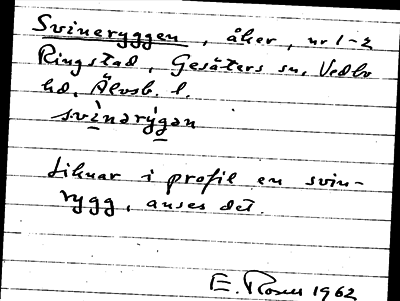 Svineryggen, åker, nr 1-2
Ringstad, Gesäters sn, Vedbo
hd, Älvsb. l.
svìnərýgən
Liknar i profil en svin-
rygg, anses det.
E. Rosen 1962